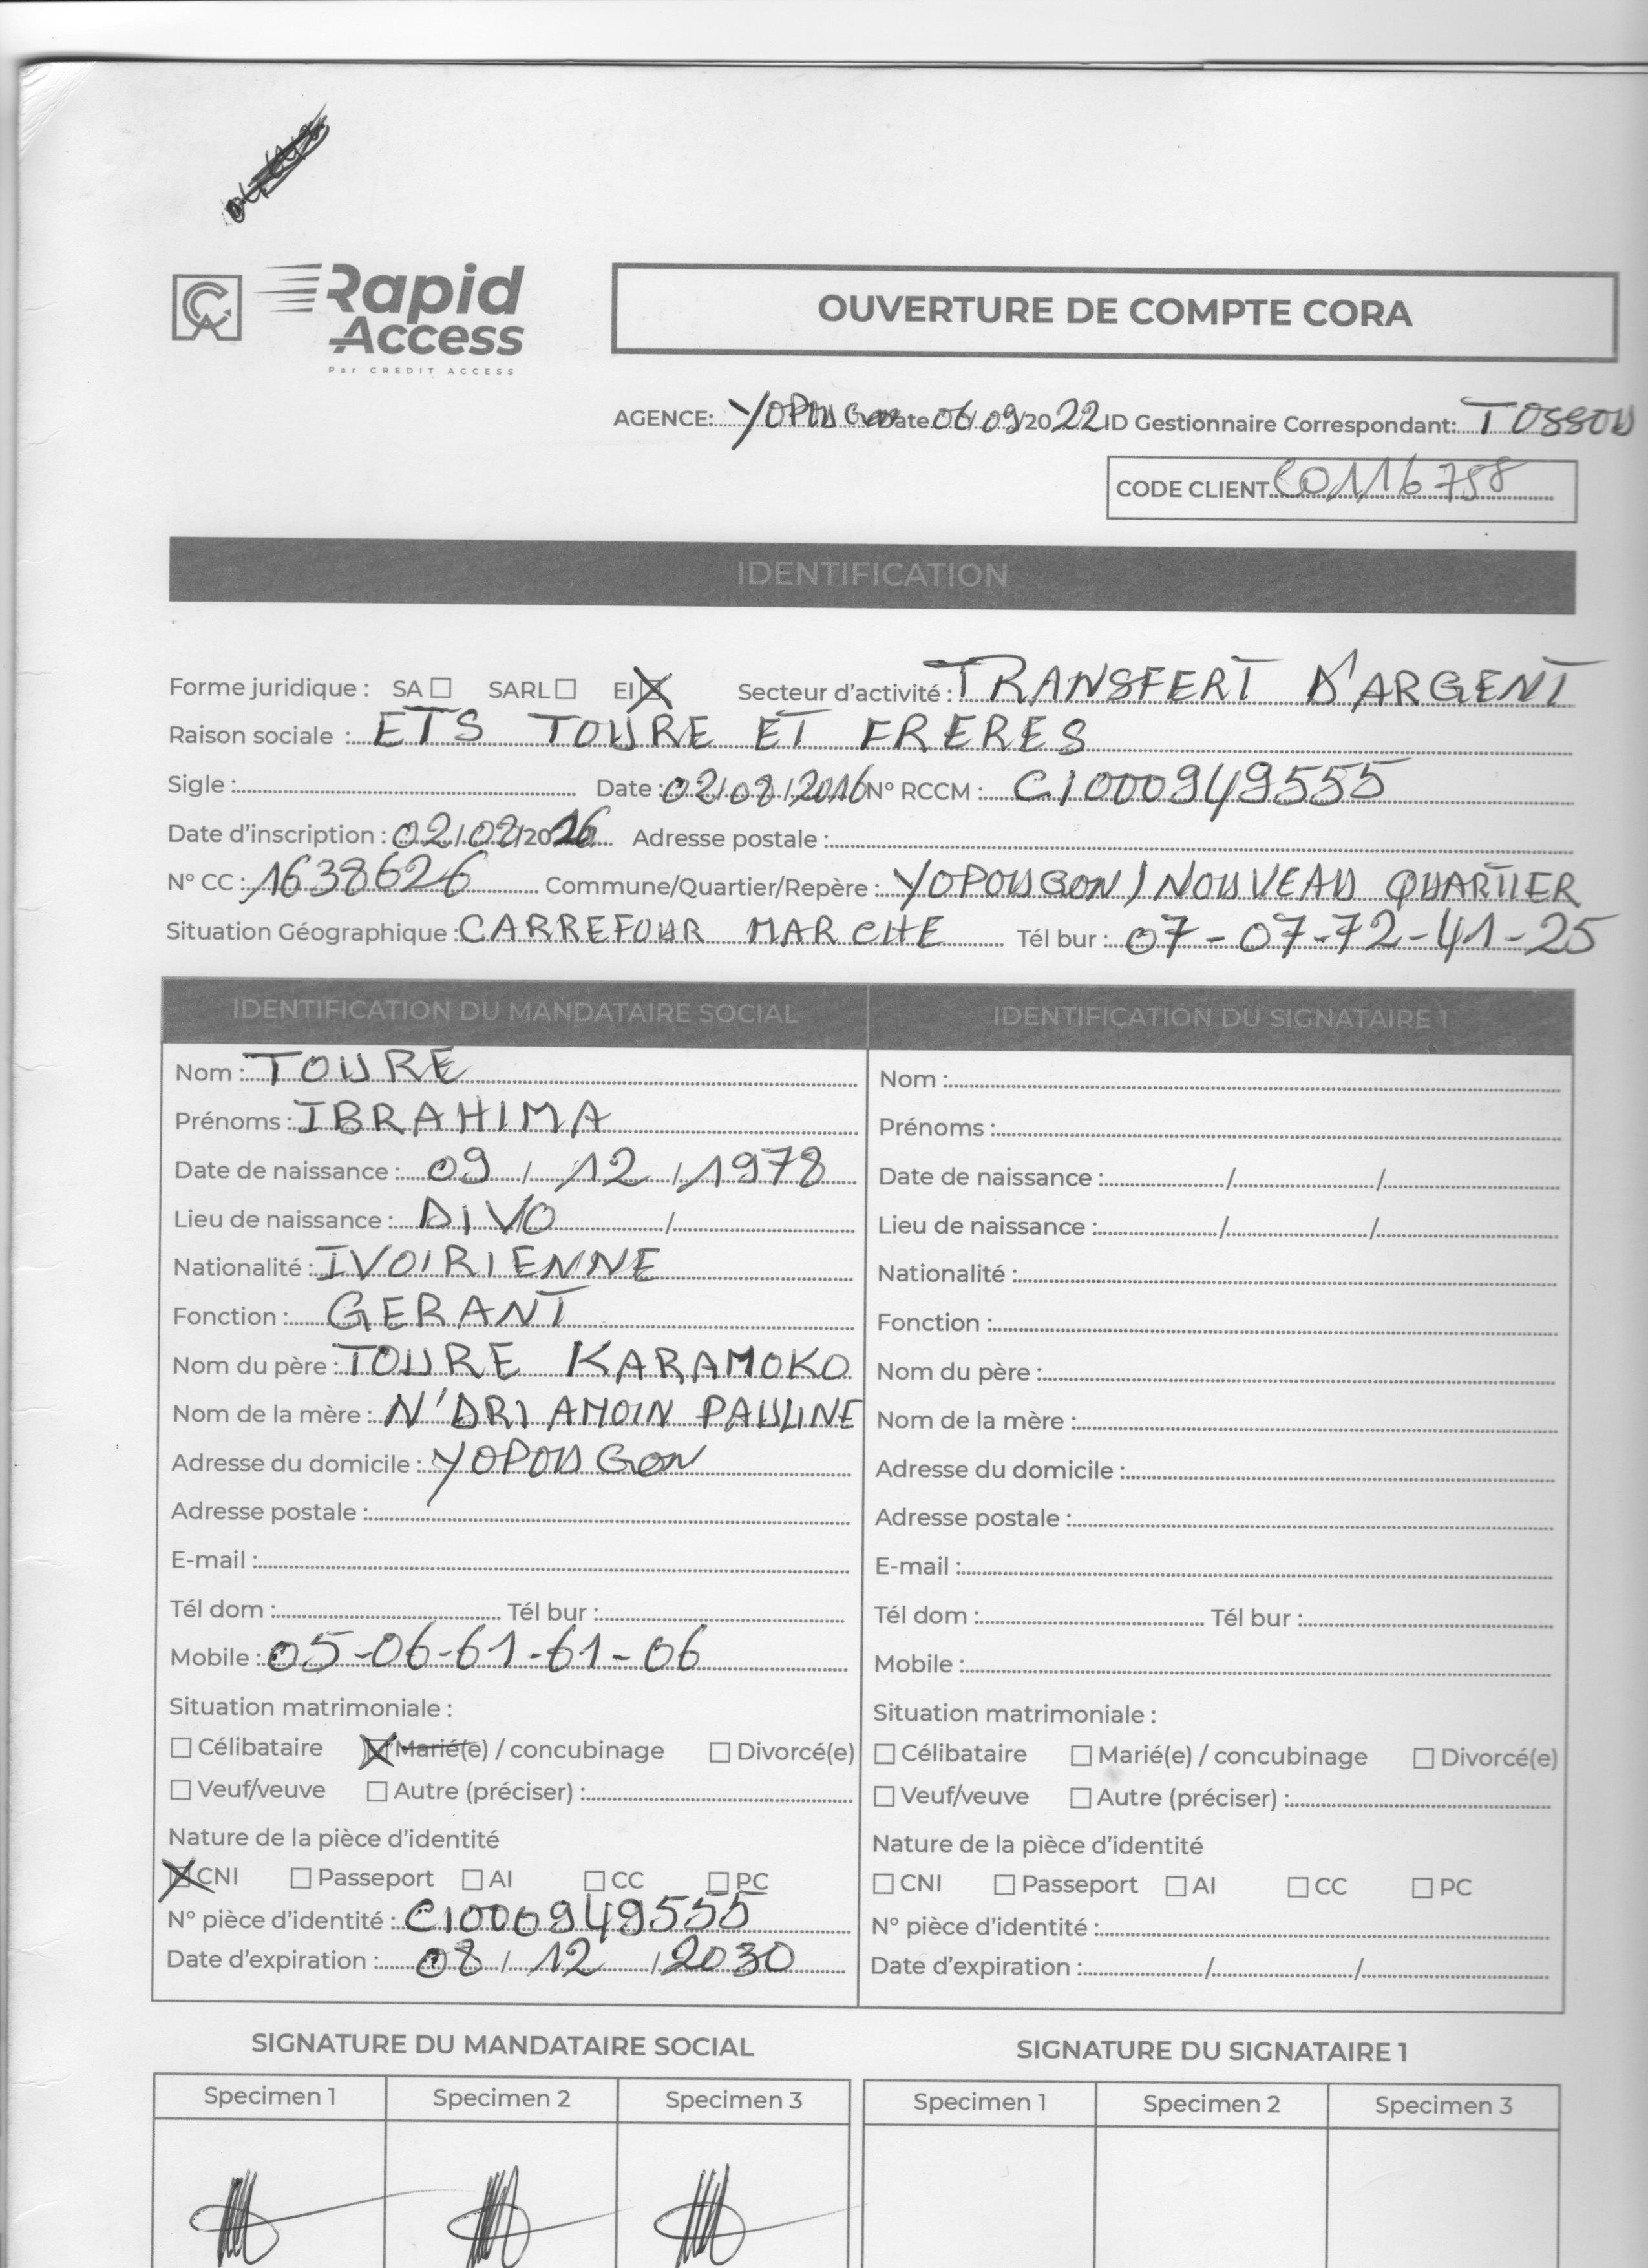 Rapid
Access
Par CREDIT ACCESS
OUVERTURE DE COMPTE CORA
AGENCE: YOPOUGON Date 06/09/2022 ID Gestionnaire Correspondant: TOSSOU
CODE CLIENT C0116758
IDENTIFICATION
Forme juridique : SA ☐ SARL ☐ EI ☒ Secteur d'activité : TRANSFERT D'ARGENT
Raison sociale : ETS TOURE ET FRERES
Sigle : Date : 02/08/2016 N° RCCM : CI000949555
Date d'inscription : 02/08/2016 Adresse postale :
N° CC : 1638626 Commune/Quartier/Repère : YOPOUGON/NOUVEAU QUARTIER
Situation Géographique : CARREFOUR MARCHE Tél bur : 07-07-72-41-25
IDENTIFICATION DU MANDATAIRE SOCIAL
Nom : TOURE
Prénoms : IBRAHIMA
Date de naissance : 09 / 12 / 1978
Lieu de naissance : DIVO /
Nationalité : IVOIRIENNE
Fonction : GERANT
Nom du père : TOURE KARAMOKO
Nom de la mère : N'DRI AMOIN PAULINE
Adresse du domicile : YOPOUGON
Adresse postale :
E-mail :
Tél dom : Tél bur :
Mobile : 05-06-61-61-06
Situation matrimoniale :
☐ Célibataire ☒ Marié(e) / concubinage ☐ Divorcé(e)
☐ Veuf/veuve ☐ Autre (préciser) :
Nature de la pièce d'identité
☒ CNI ☐ Passeport ☐ AI ☐ CC ☐ PC
N° pièce d'identité : CI000949555
Date d'expiration : 08 / 12 / 2030
IDENTIFICATION DU SIGNATAIRE 1
Nom :
Prénoms :
Date de naissance : / /
Lieu de naissance : / /
Nationalité :
Fonction :
Nom du père :
Nom de la mère :
Adresse du domicile :
Adresse postale :
E-mail :
Tél dom : Tél bur :
Mobile :
Situation matrimoniale :
☐ Célibataire ☐ Marié(e) / concubinage ☐ Divorcé(e)
☐ Veuf/veuve ☐ Autre (préciser) :
Nature de la pièce d'identité
☐ CNI ☐ Passeport ☐ AI ☐ CC ☐ PC
N° pièce d'identité :
Date d'expiration : / /
SIGNATURE DU MANDATAIRE SOCIAL
Specimen 1 Specimen 2 Specimen 3
SIGNATURE DU SIGNATAIRE 1
Specimen 1 Specimen 2 Specimen 3